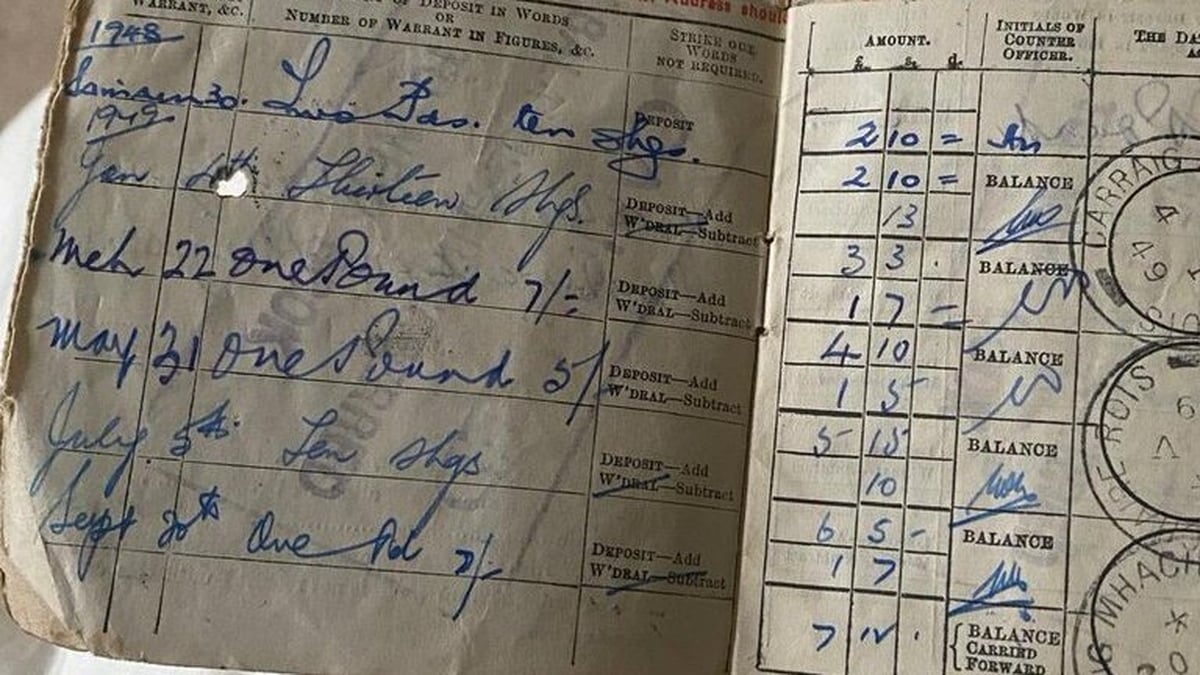 WARRANT, &C.
OF DEPOSIT IN WORDS
OR
NUMBER OF WARRANT IN FIGURES, &C.
STRIKE OUT
WORDS
NOT REQUIRED.
Address should
AMOUNT.
£. s. d.
INITIALS OF
COUNTER
OFFICER.
THE DA
1948
30. Two Pds. ten shgs. DEPOSIT
2 10 =
1949
2 10 = BALANCE
Jan 4th Thirteen Shgs. DEPOSIT—Add
W'DRAL—Subtract
13
3 3 . BALANCE
Mch 22 One Pound 7/- DEPOSIT—Add
W'DRAL—Subtract
1 7 =
4 10 BALANCE
May 31 One Pound 5/ DEPOSIT—Add
W'DRAL—Subtract
1 5
5 15 BALANCE
July 5th Ten shgs DEPOSIT—Add
W'DRAL—Subtract
10
6 5 - BALANCE
Sept 20th One Pd 7/- DEPOSIT—Add
W'DRAL—Subtract
1 7
7 12 . BALANCE
CARRIED
FORWARD
CARRAIG
4
49
ROIS
MHACH